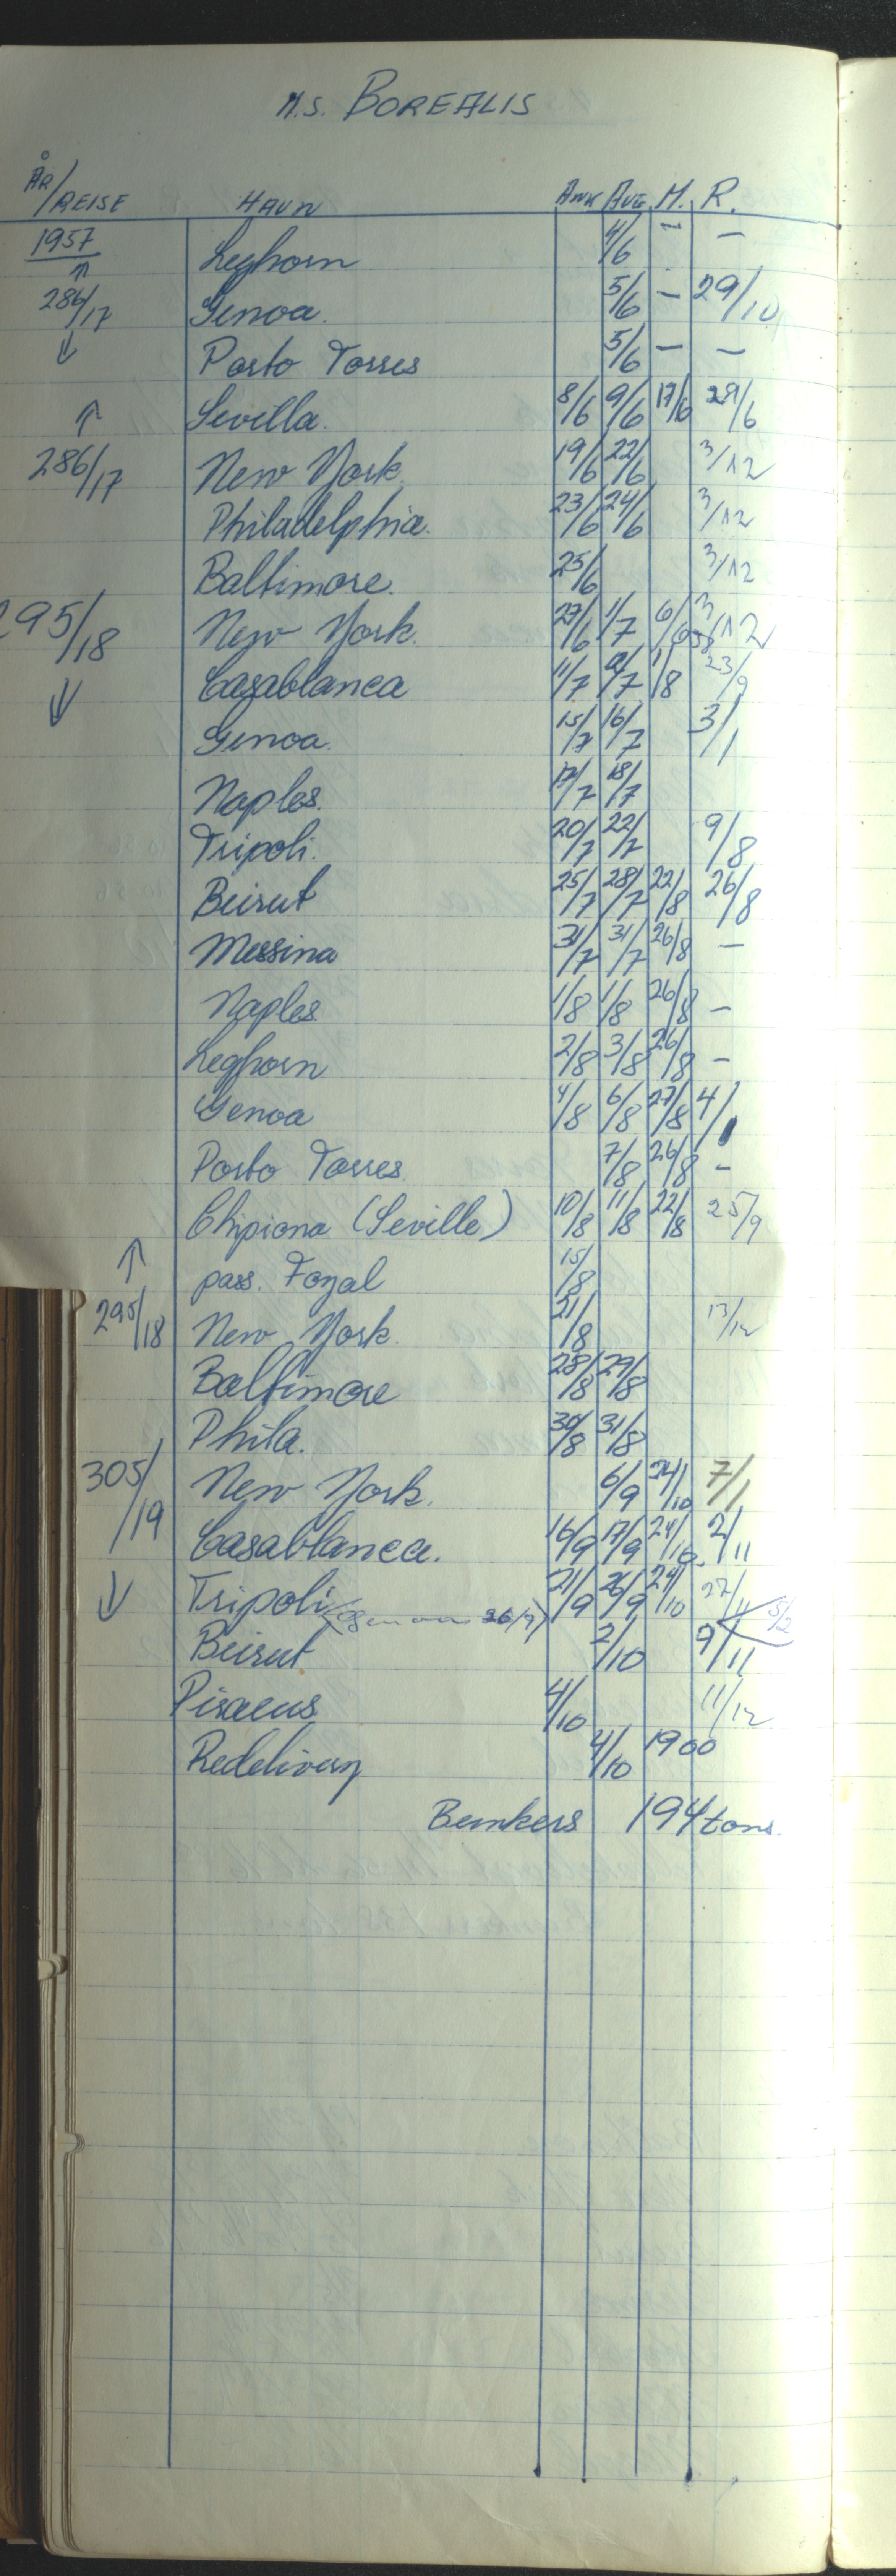 M.S. BOREALIS
ÅR/REISE HAVN ANK AVG. M. R.
1957 Leghorn 4/6 – –
↑ 286/17 Genoa. 5/6 – 29/10
↓ Porto Torres 5/6 – –
↑ Sevilla. 8/6 9/6 17/6 29/6
286/17 New York. 19/6 22/6 3/12
Philadelphia. 23/6 24/6 3/12
Baltimore. 25/6 3/12
295/18 New York. 27/6 1/7 6/6 58 3/12
↓ Casablanca 11/7 /7 1/8 23/9
Genoa. 15/7 16/7 3/1
Naples. 17/7 18/7
Tripoli. 20/7 22/7 9/8
Beirut 25/7 28/7 22/8 26/8
Messina 31/7 31/7 26/8 –
Naples 1/8 1/8 26/8 –
Leghorn 2/8 3/8 26/8 –
Genoa 4/8 6/8 27/8 4/1
Porto Torres 7/8 26/8 –
Chipiona (Seville) 10/8 11/8 22/8 25/9
↑ pass. Fayal 15/8
295/18 New York. 21/8 13/12
Baltimore 28/8 29/8
Phila. 30/8 31/8
305/19 New York. 6/9 24/10 7/1
Casablanca. 16/9 17/9 24/10 2/11
↓ Tripoli (Genoa 26/9) 21/9 26/9 24/10 27/11 5/2
Beirut 2/10 9/11
Piraeus 4/10 11/12
Redelivery 4/10 1900
Bunkers 194 tons.